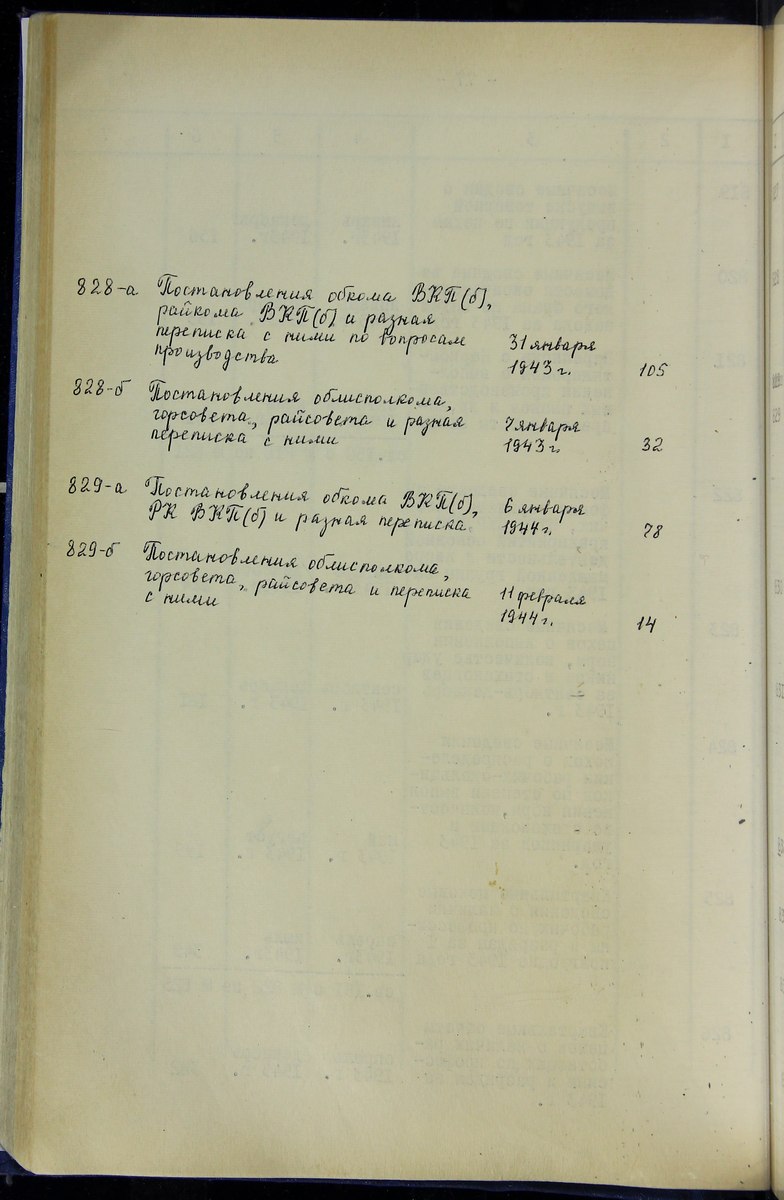 828-а Постановления обкома ВКП(б),
райкома ВКП(б) и разная
переписка с ними по вопросам 31 января
производства 1943 г. 105
828-б Постановления облисполкома,
горсовета, райсовета и разная 7 января
переписка с ними 1943 г. 32
829-а Постановления обкома ВКП(б), 6 января
РК ВКП(б) и разная переписка 1944 г. 78
829-б Постановления облисполкома,
горсовета, райсовета и переписка 11 февраля
с ними 1944 г. 14